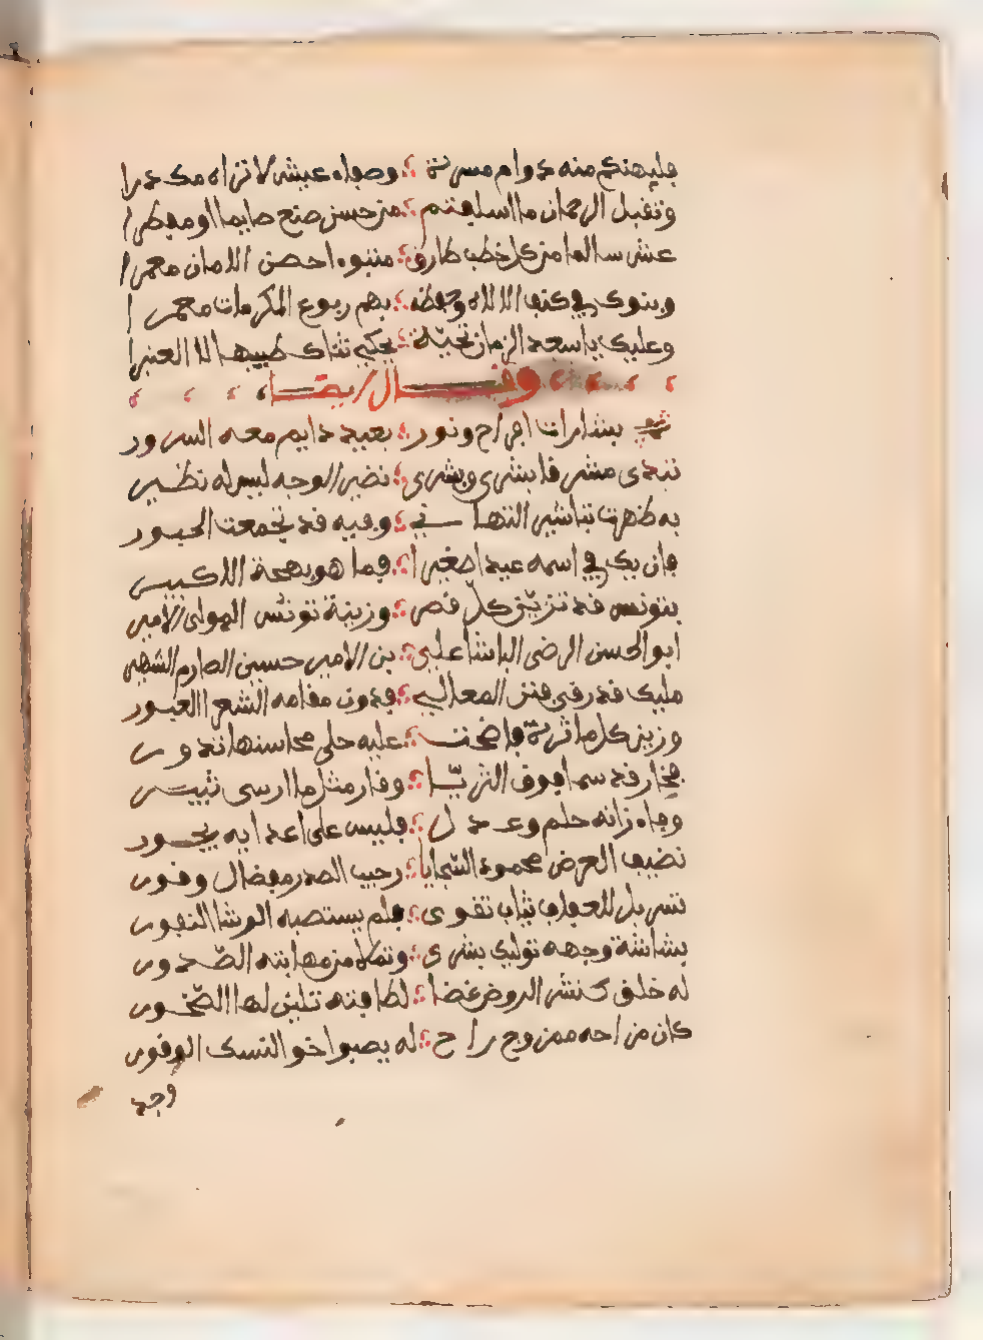 فليهنكم منه دوام مسرة ؛ وصفاء عيش لا تراه مكدرا
وتقبل الرحمان ما اسلفتم ؛ من حسن صنع صايما او مفطرا
عش سالما من كل خطب طارق ؛ متبوءا حصن الامان معمرا
وبنوك في كنف الالاه وحفظه ؛ بهم ربوع المكرمات معمرا
وعليك يا سعد الزمان تحيّة ؛ يحكي ثناك طيبها العنبرا
وقال ايضا
بشارات افراح ونور ؛ بعيد دايم معه السرور
تبدى مشرفا بشرى وبشرى ؛ نضير الوجه ليس له نظير
به ظهرت تباشير التهاني ؛ وفيه قد تجمعت الحبور
فان يك في اسمه عيدا صغيرا ؛ فما هو بهجة الا كبير
بتونس قد تزيّن كلّ قصر ؛ وزينة تونس المولى الامير
ابو الحسن الرضى الباشا علي ؛ بن الامير حسين الصارم الشهير
مليك قد رقى قنن المعالي ؛ فدون مقامه الشعرا العبور
وزين كل ماثرة فاضحت ؛ عليه حلى محاسنها تدور
فخار قد سما فوق الثريّا ؛ وقار مثل ما ارسى ثبير
وجاه زانه حلم وعدل ؛ فليس على اعدايه يجور
نضيف العرض محمود السّجايا ؛ رحيب الصدر مفضال وقور
تسربل للعفاف ثياب تقوى ؛ فلم يستصبه الرشا النفور
بشاشة وجهه توليك بشرى ؛ وتملا من مهابته الصّدور
له خلق كنشر الروض غضا ؛ لطافته تلين لها الصّخور
كان مزاحه ممزوج راح ؛ له يصبوا اخو النسك الوقور
وجد